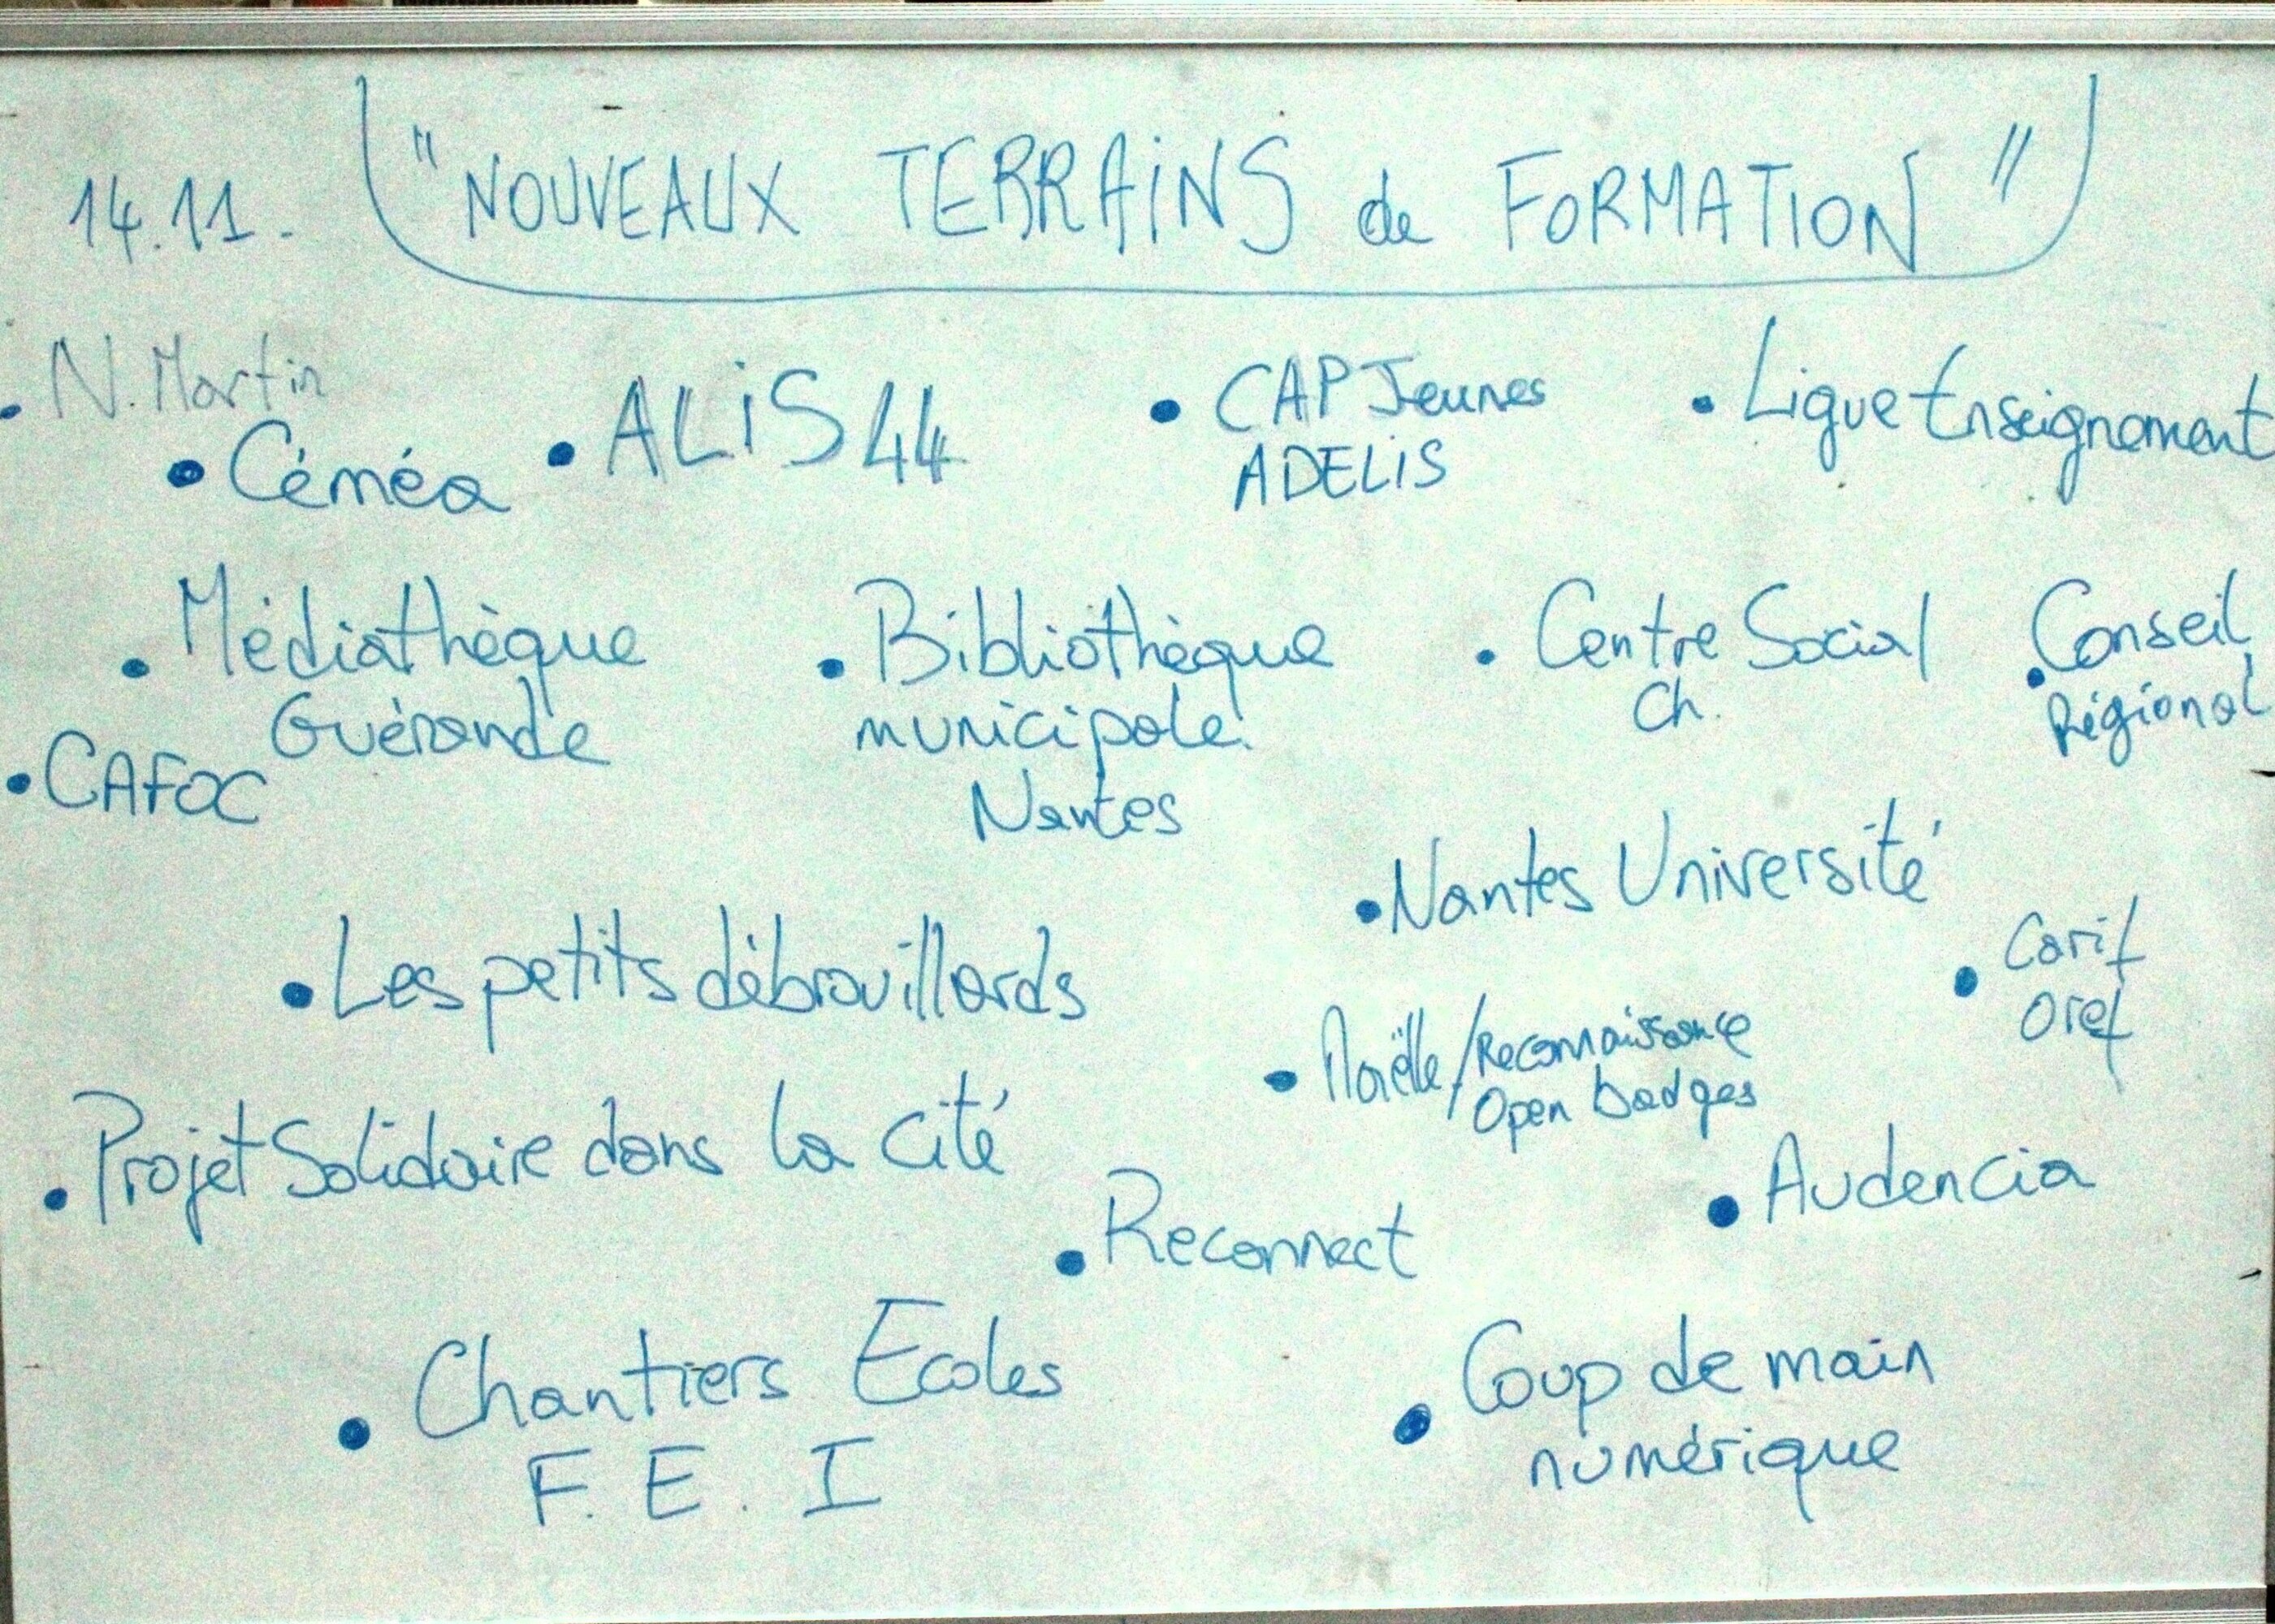 14.11. "NOUVEAUX TERRAINS de FORMATION"
• N. Martin
• Céméa
• ALIS 44
• CAP Jeunes
ADELIS
• Ligue Enseignement
• Médiathèque
Guérande
• Bibliothèque
municipale
Nantes
• Centre Social
Ch.
• Conseil
Régional
• CAFOC
• Nantes Université
• Les petits débrouillards
• Carif
Oref
• /Reconnaissance
Open badges
• Projet Solidaire dans la Cité
• Reconnect
• Audencia
• Chantiers Ecoles
F. E. I
• Coup de main
numérique